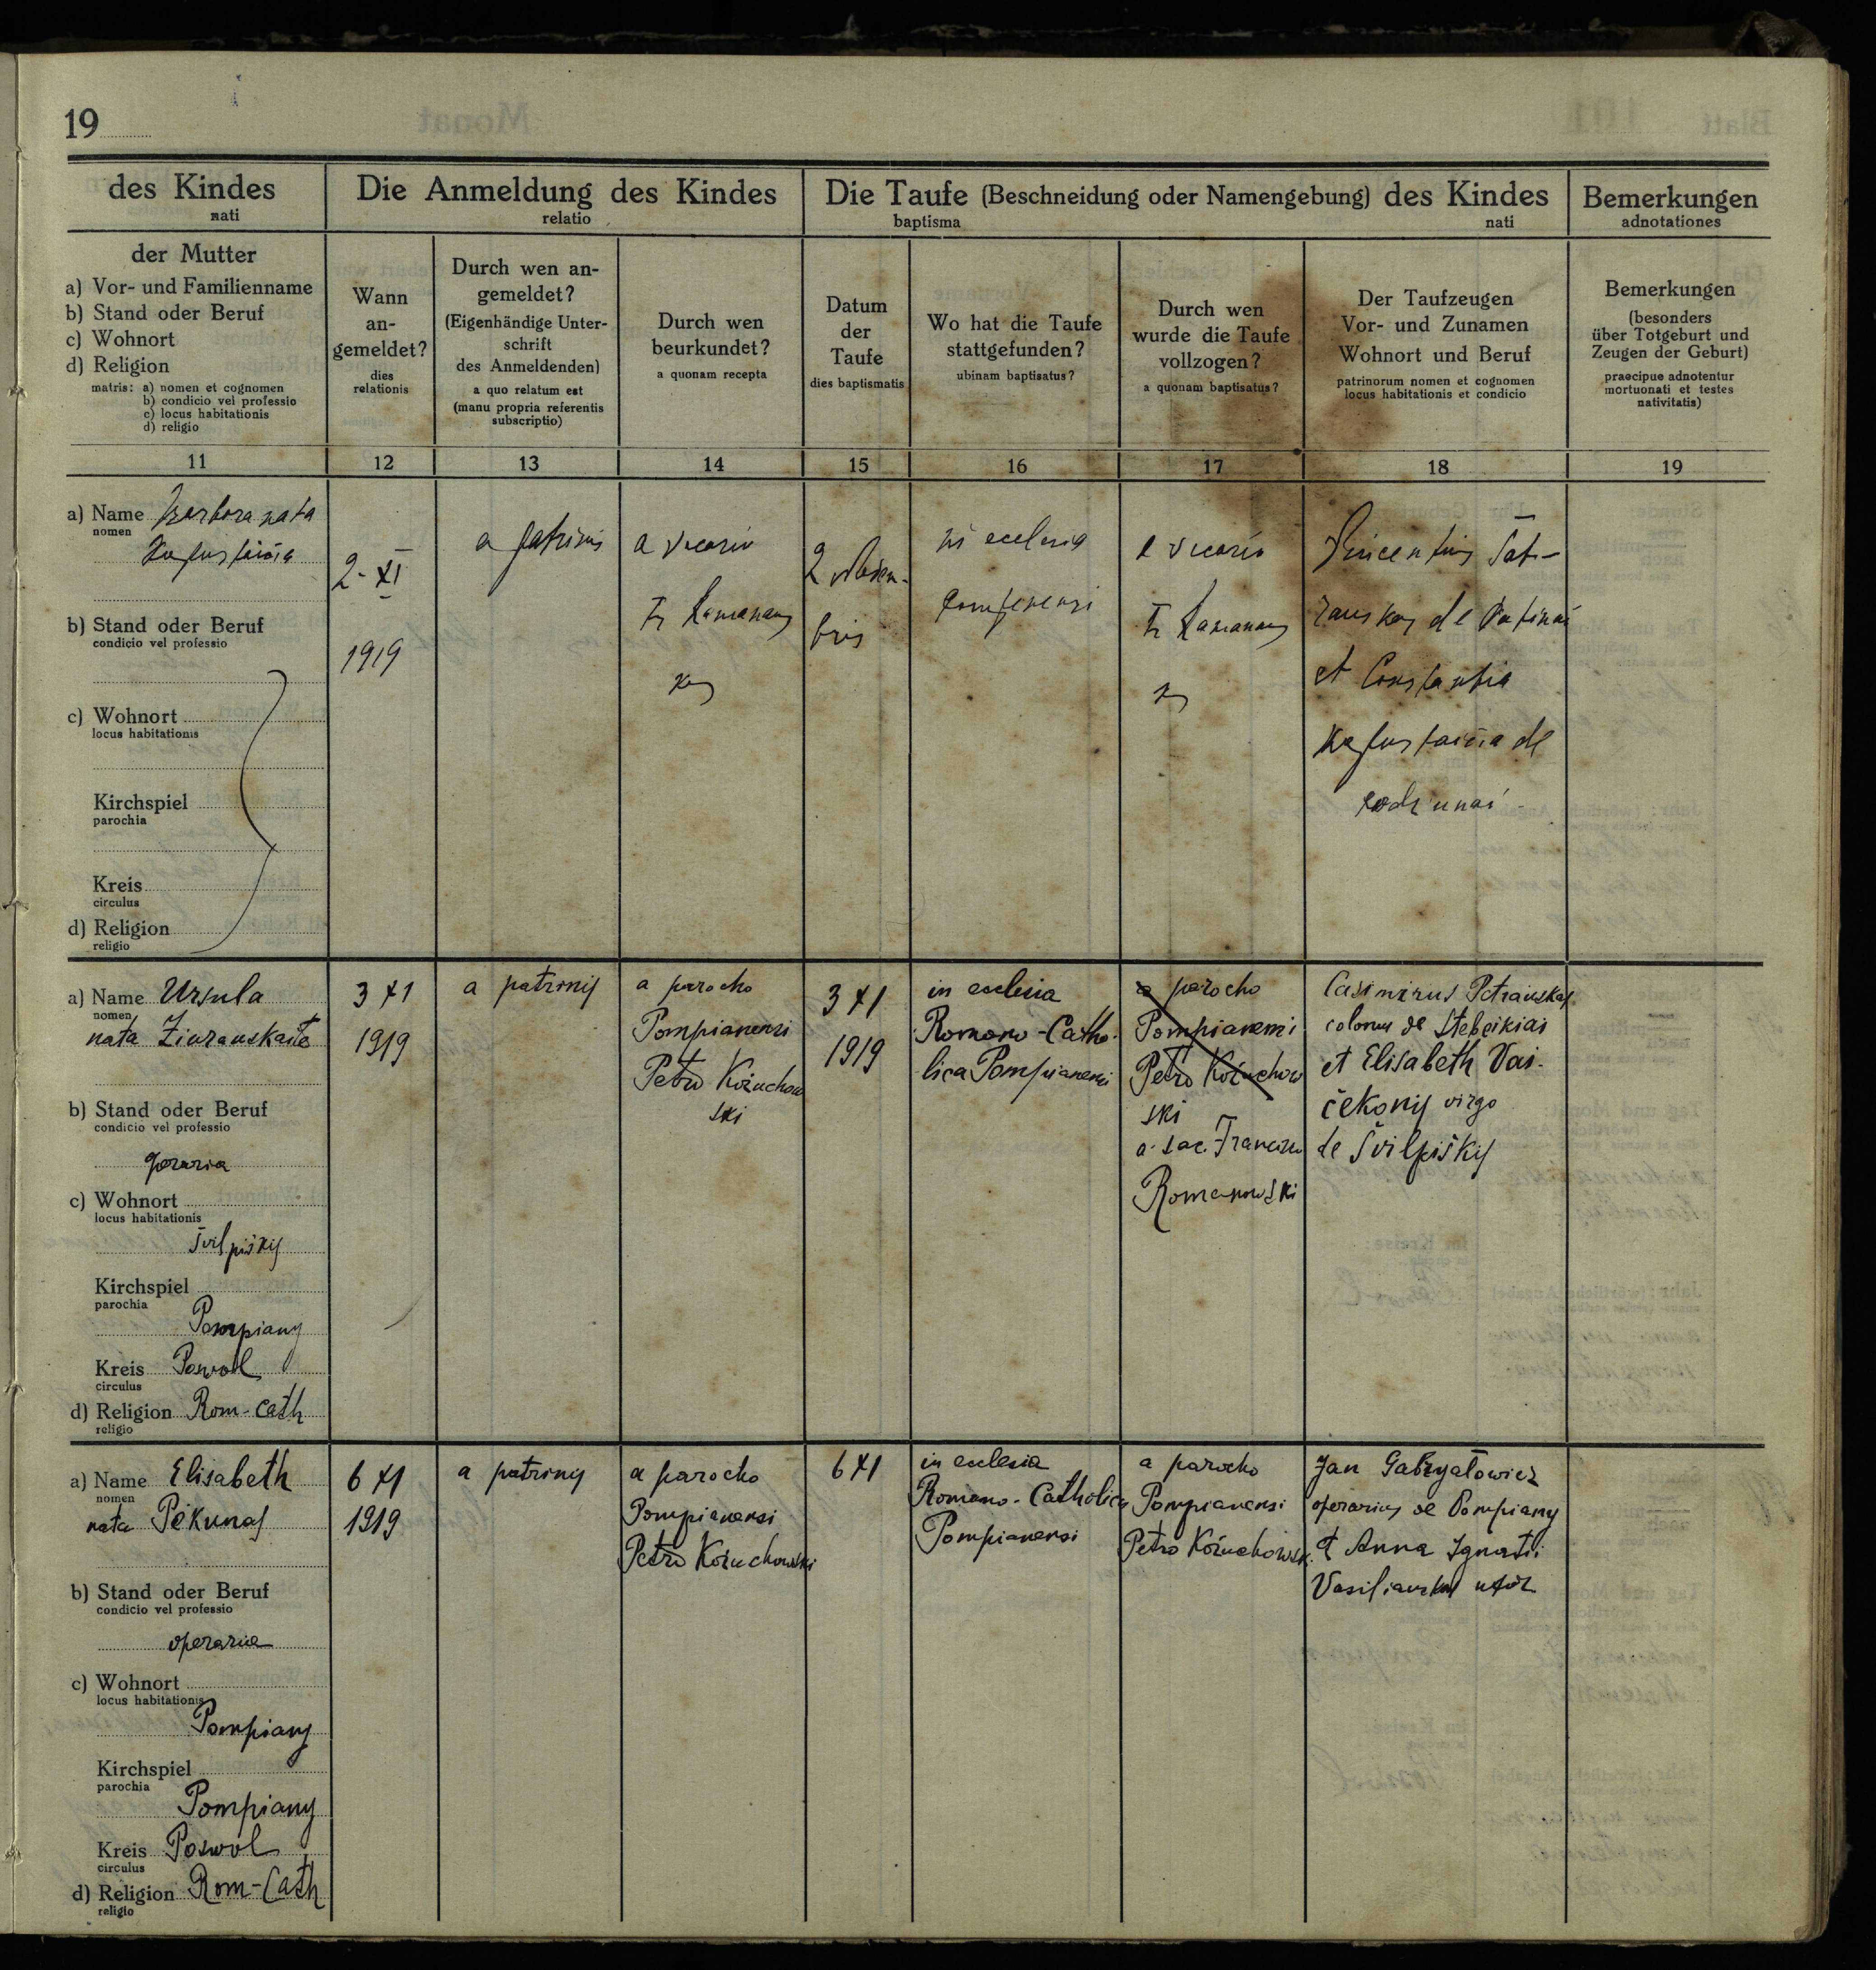 19
des Kindes
nati
Die Anmeldung des Kindes
relatio
Die Taufe (Beschneidung oder Namengebung) des Kindes
baptisma nati
Bemerkungen
adnotationes
der Mutter
a) Vor- und Familienname
b) Stand oder Beruf
c) Wohnort
d) Religion
matris: a) nomen et cognomen
b) condicio vel professio
c) locus habitationis
d) religio
Wann
an-
gemeldet?
dies
relationis
Durch wen an-
gemeldet?
(Eigenhändige Unter-
schrift
des Anmeldenden)
a quo relatum est
(manu propria referentis
subscriptio)
Durch wen
beurkundet?
a quonam recepta
Datum
der
Taufe
dies baptismatis
Wo hat die Taufe
stattgefunden?
ubinam baptisatus?
Durch wen
wurde die Taufe
vollzogen?
a quonam baptisatus?
Der Taufzeugen
Vor- und Zunamen
Wohnort und Beruf
patrinorum nomen et cognomen
locus habitationis et condicio
Bemerkungen
(besonders
über Totgeburt und
Zeugen der Geburt)
praecipue adnotentur
mortuonati et testes
nativitatis)
11 12 13 14 15 16 17 18 19
a) Name Barbora nata
nomen
b) Stand oder Beruf
condicio vel professio
c) Wohnort
locus habitationis
Kirchspiel
parochia
Kreis
circulus
d) Religion
religio
2-XI
1919
a patrinis
a vicario
2
bris
in eclesia
a vicario
Vincentius
de
et Constantia
de
a) Name Ursula
nomen
nata Ziurauskaite
b) Stand oder Beruf
condicio vel professio
c) Wohnort
locus habitationis
Švilpiškij
Kirchspiel
parochia
Pompiany
Kreis Poswol
circulus
d) Religion Rom-Cath
religio
3 XI
1919
a patrinij
a parocho
Pompianensi
Petro Kożuchow
ski
3 XI
1919
in eclesia
Romano-Catho-
lica Pompianensi
a parocho
Pompianensi
Petro Kożuchow
ski
a sac.
Romanowski
Casimirus Petrauskas
colonus de
et Elisabeth Vai-
čekonij virgo
de Švilpiškij
a) Name Elisabeth
nomen
nata Pekunas
b) Stand oder Beruf
condicio vel professio
operaria
c) Wohnort
locus habitationis
Pompiany
Kirchspiel
parochia
Pompiany
Kreis Poswol
circulus
d) Religion Rom-Cath
religio
6 XI
1919
a patrinij
a parocho
Pompianensi
Petro Kożuchowski
6 XI
in eclesia
Romano-Catholica
Pompianensi
a parocho
Pompianensi
Petro Kożuchowski
Jan Gabryałowicz
operarius de Pompiany
et Anna Ignatii
uxor